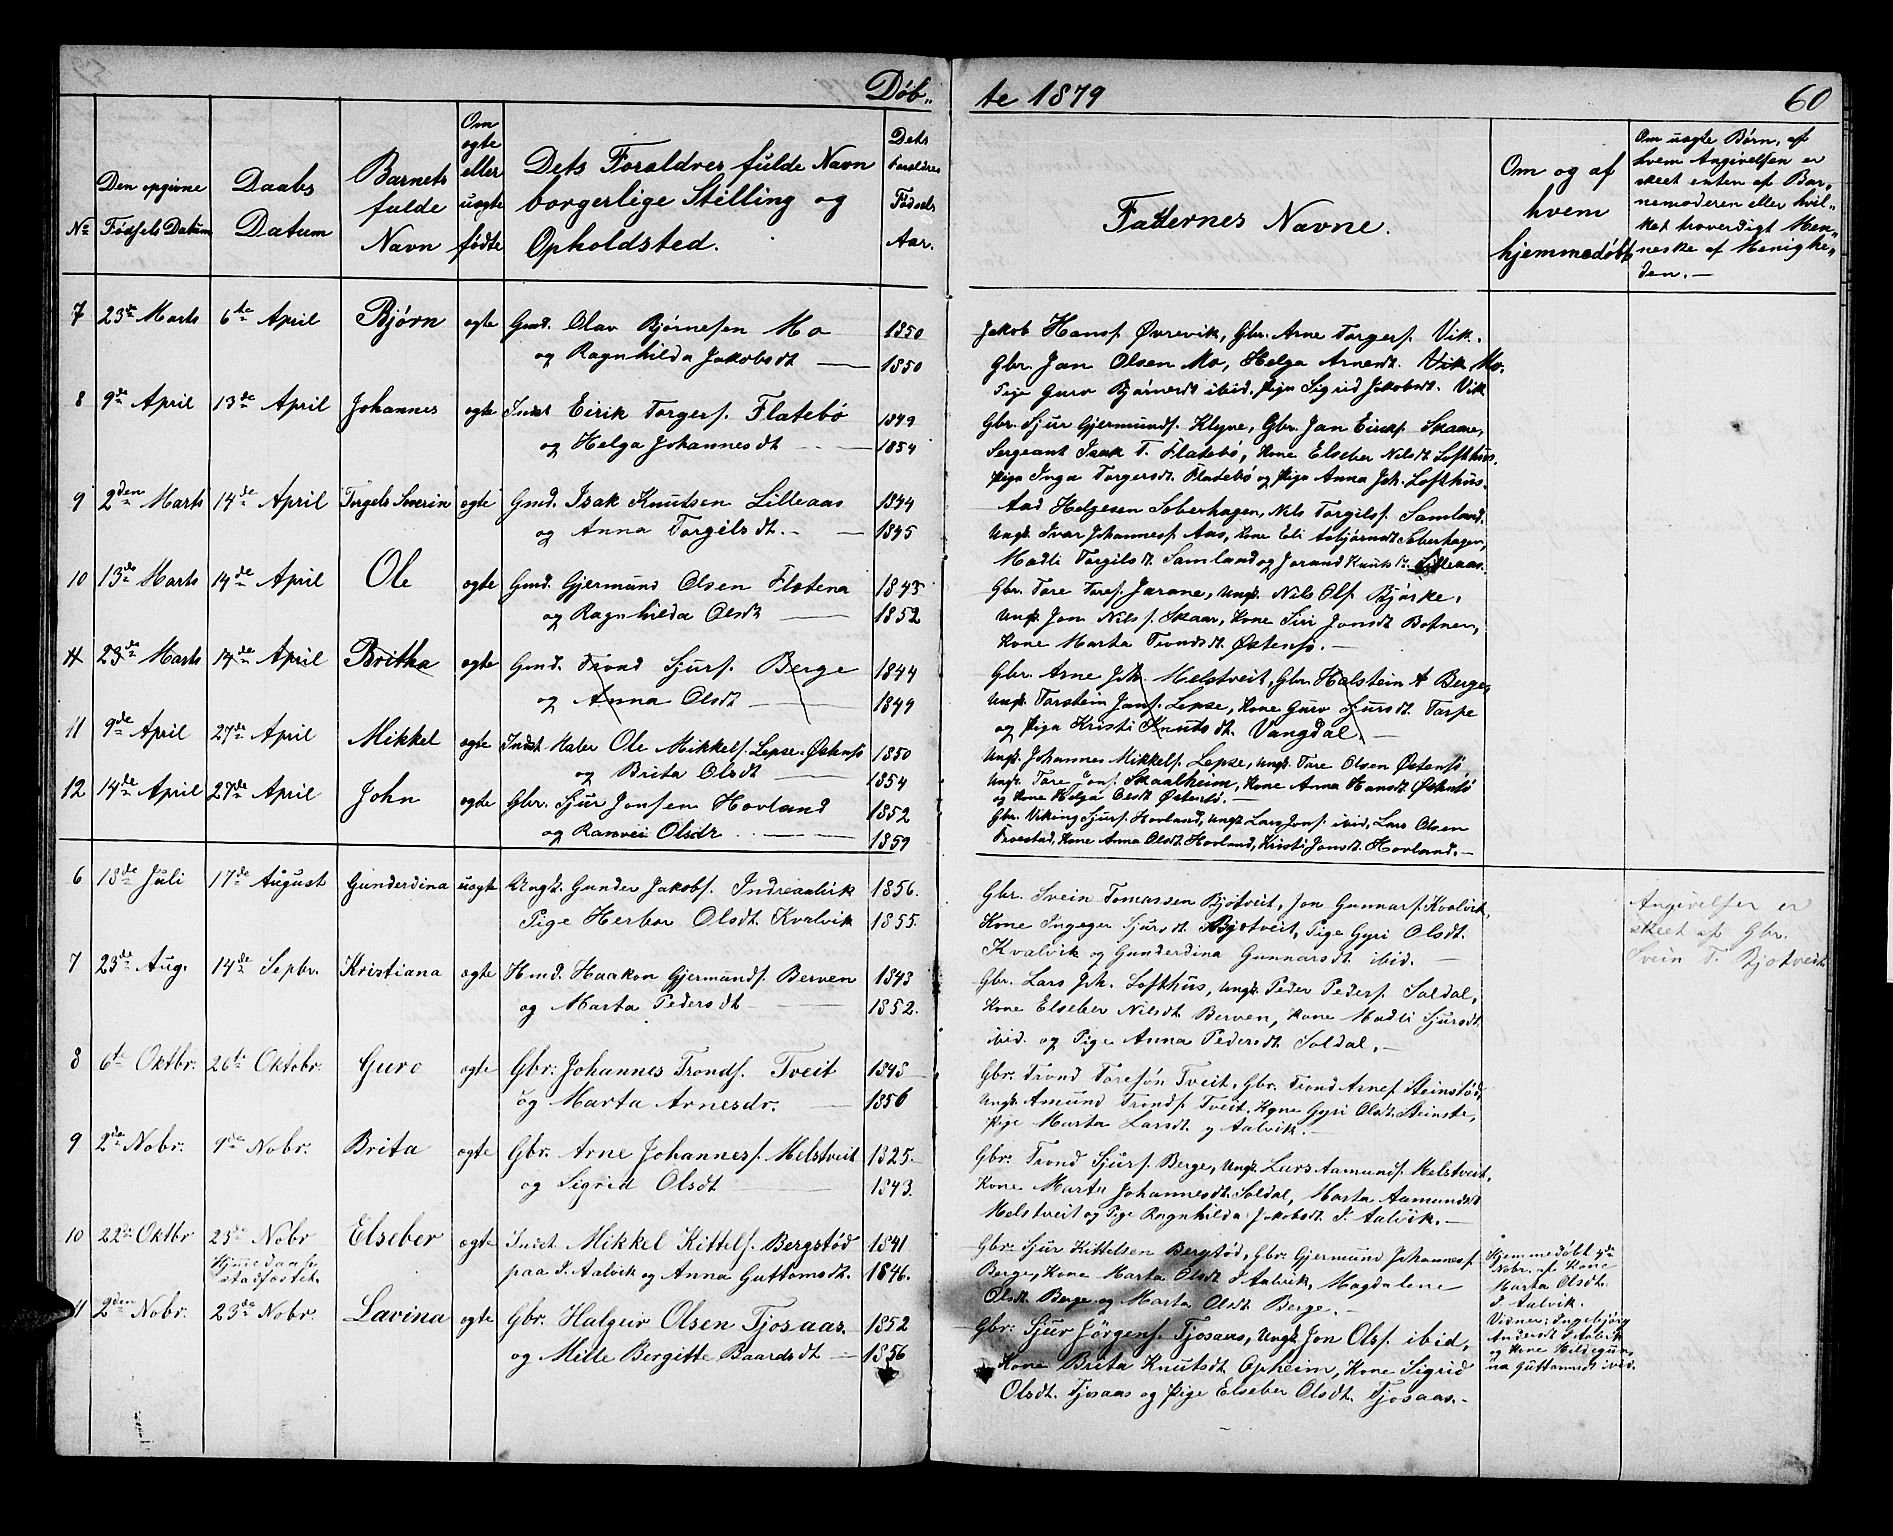 Døb„ te 1879 60
No
Den opgivne Fødsels Datum
Daabs Datum
Barnets fulde Navn
Om ægte eller uægte fødte
Dets Forældres fulde Navn borgerlige Stilling og Opholdsted.
Dets Forældres Fødsels Aar.
Faddernes Navne.
Om og af hvem hjemmedøbt
Om uægte Børn, af hvem Angivelsen er skeet enten af Barnemoderen eller hvilket troverdigt Menneske af Menigheden.—
7 23de Marts 6te April Bjørn ægte Gmd. Olav Bjørnesen Mo 1850 Jakob Hansf. Øvrevik, Gbr. Arne Torgersf. Vik.
og Ragnhilda Jakobsdt — 1850 Gbr. Jan Olsen Mo, Helga Arnedt. Vik Mo.
Pige Guro Bjørnedt ibid. Pige Sigrid Jakobsdt. Vik
8 9de April 13de April Johannes ægte Indst Eirik Torgersf. Flatebø 1849 Gbr. Sjur Gjermundsf. Klyve, Gbr. Jan Eiriksf. Skaare,
og Helga Johannesdt — 1854 Sergeant Isak T. Flatebø, Kone Elseber Nilsdt Lofthus.
Pige Inga Torgersdt. Flatebø og Pige Anna Joh. Lofthus.
9 2den Marts 14de April Torgels Severin ægte Gmd. Isak Knutsen Lilleaas 1844 Aad Helgesen Soberhagen, Nils Torgilsf. Samland.
og Anna Torgilsdt. — 1845 Ungk. Ivar Johannesf. Aas, Kone Eli Asbjørnsdt Soberhagen,
Madli Torgilsdt. Samland og Jorand Knutsdt. Lilleaas.
10 13de Marts 14de April Ole ægte Gmd. Gjermund Olsen Flotena 1843 Gbr. Tore Toresf. Jarane, Ungk. Nils Olsf. Bjørke,
og Ragnhilda Olsdt — 1852 Ungk. Jon Nilsf. Skaar, Kone Siri Jonsdt Botnen,
Kone Marta Trondsdt. Østensø.—
11 23de Marts 14de April Britha ægte Gmd. Trond Sjursf. Berge 1844 Gbr. Arne Joh. Melstveit, Gbr. Halstein A Berge,
og Anna Olsdt — 1849 Ungk. Torstein Jonsf. Lepse, Kone Guro Sjursdt. Torpe
og Pige Kristi Knutsdt. Vangdal.—
11 9de April 27de April Mikkel ægte Indst Maler Ole Mikkelsf. Lepse. Østensø 1850 Ungk. Johannes Mikkelsf. Lepse, Ungk. Tore Olsen Østensø,
og Brita Olsdt — 1854 Ungk. Tore Jonsf. Skaalheim, Kone Anna Hansdt Østensø
og Kone Helga Olsdt Østensø.—
12 14de April 27de April John ægte Gbr. Sjur Jonsen Hovland 1852 Gbr. Viking Sjursf. Hovland, Ungk. Lars Jonsf. ibid, Lars Olsen
og Ranvei Olsdt — 1859 Kone Anna Olsdt Hovland, Kristi Jonsdt. Hovland.—
6 18de Juli 17de August Gunderdina uægte Ungk. Gunder Jakobsf. Indreaalvik 1856. Gbr. Svein Tomassen Bjotveit, Jon Gunnarsf. Kvalvik,
Pige Herbor Olsdt. Kvalvik 1855. Kone Ingeger Sjursdt. Bjotveit, Pige Gyri Olsdt.
Kvalvik og Gunderdina Gunnarsdt ibid.—
Angivelsen er skeet af Gbr. Svein T. Bjotveit
7 23de Aug. 14de Sepbr. Kristiana ægte Hmd. Haakon Gjermundsf. Berven 1843 Gbr. Lars Joh. Lofthus, Ungk. Peder Pedersf. Soldal,
og Marta Pedersdt — 1852. Kone Elseber Nilsdt Berven, Kone Madli Sjursdt.
ibid. og Pige Anna Pedersdt Soldal.—
8 6te Oktbr. 26de Oktobr. Guro ægte Gbr: Johannes Trondsf. Tveit 1845 Gbr: Trond Toresøn Tveit, Gbr. Trond Arnesf Steinstød,
og Marta Arnesdr. — 1856 Ungk. Amund Trondsf. Tveit. Kone Gyri Olsdt. Steinstø,
Pige Marta Larsdt. y Aalvik.—
9 2de Nobr. 9de Nobr. Brita ægte Gbr: Arne Johannesf. Melstveit 1825. Gbr: Trond Sjursf. Berge, Ungk. Lars Aamundsf. Melstveit,
og Sigrid Olsdt — 1843. Kone Marta Johannesdt Soldal, Marta Aamundsdt
Melstveit og Pige Ragnhilda Jakobsdt I. Aalvik.—
10 22de Oktbr 23de Nobr Elseber ægte Indst. Mikkel Kittelsf. Bergstød 1841 Gbr: Sjur Kittelsen Bergstød, Gbr: Gjermund Johannesf
Hjmedaab stadfæstet. paa I. Aalvik og Anna Guttomsdt. 1846. Berge, Kone Marta Olsdt I Aalvik, Magdalene
Olsdt. Berge og Marta Olsdt Berge.—
Hjemmedøbt 4de Nobr. af Kone Marta Olsdt. I. Aalvik. Vidner: Ingebjørg Andersdt I Aalvik og Kone Hildegunna Guttormsdt ibid.
11 2den Nobr. 23de Nobr. Lavina ægte Gbr. Halgeir Olsen Tjosaas. 1852 Gbr: Sjur Jørgensf. Tjosaas, Ungk. Jon Olsf. ibid,
og Mille Bergitte Baardsdt — 1856 Kone Brita Knutsdt Opheim, Kone Sigrid
Olsdt. Tjosaas og Pige Elseber Olsdt. Tjosaas.-